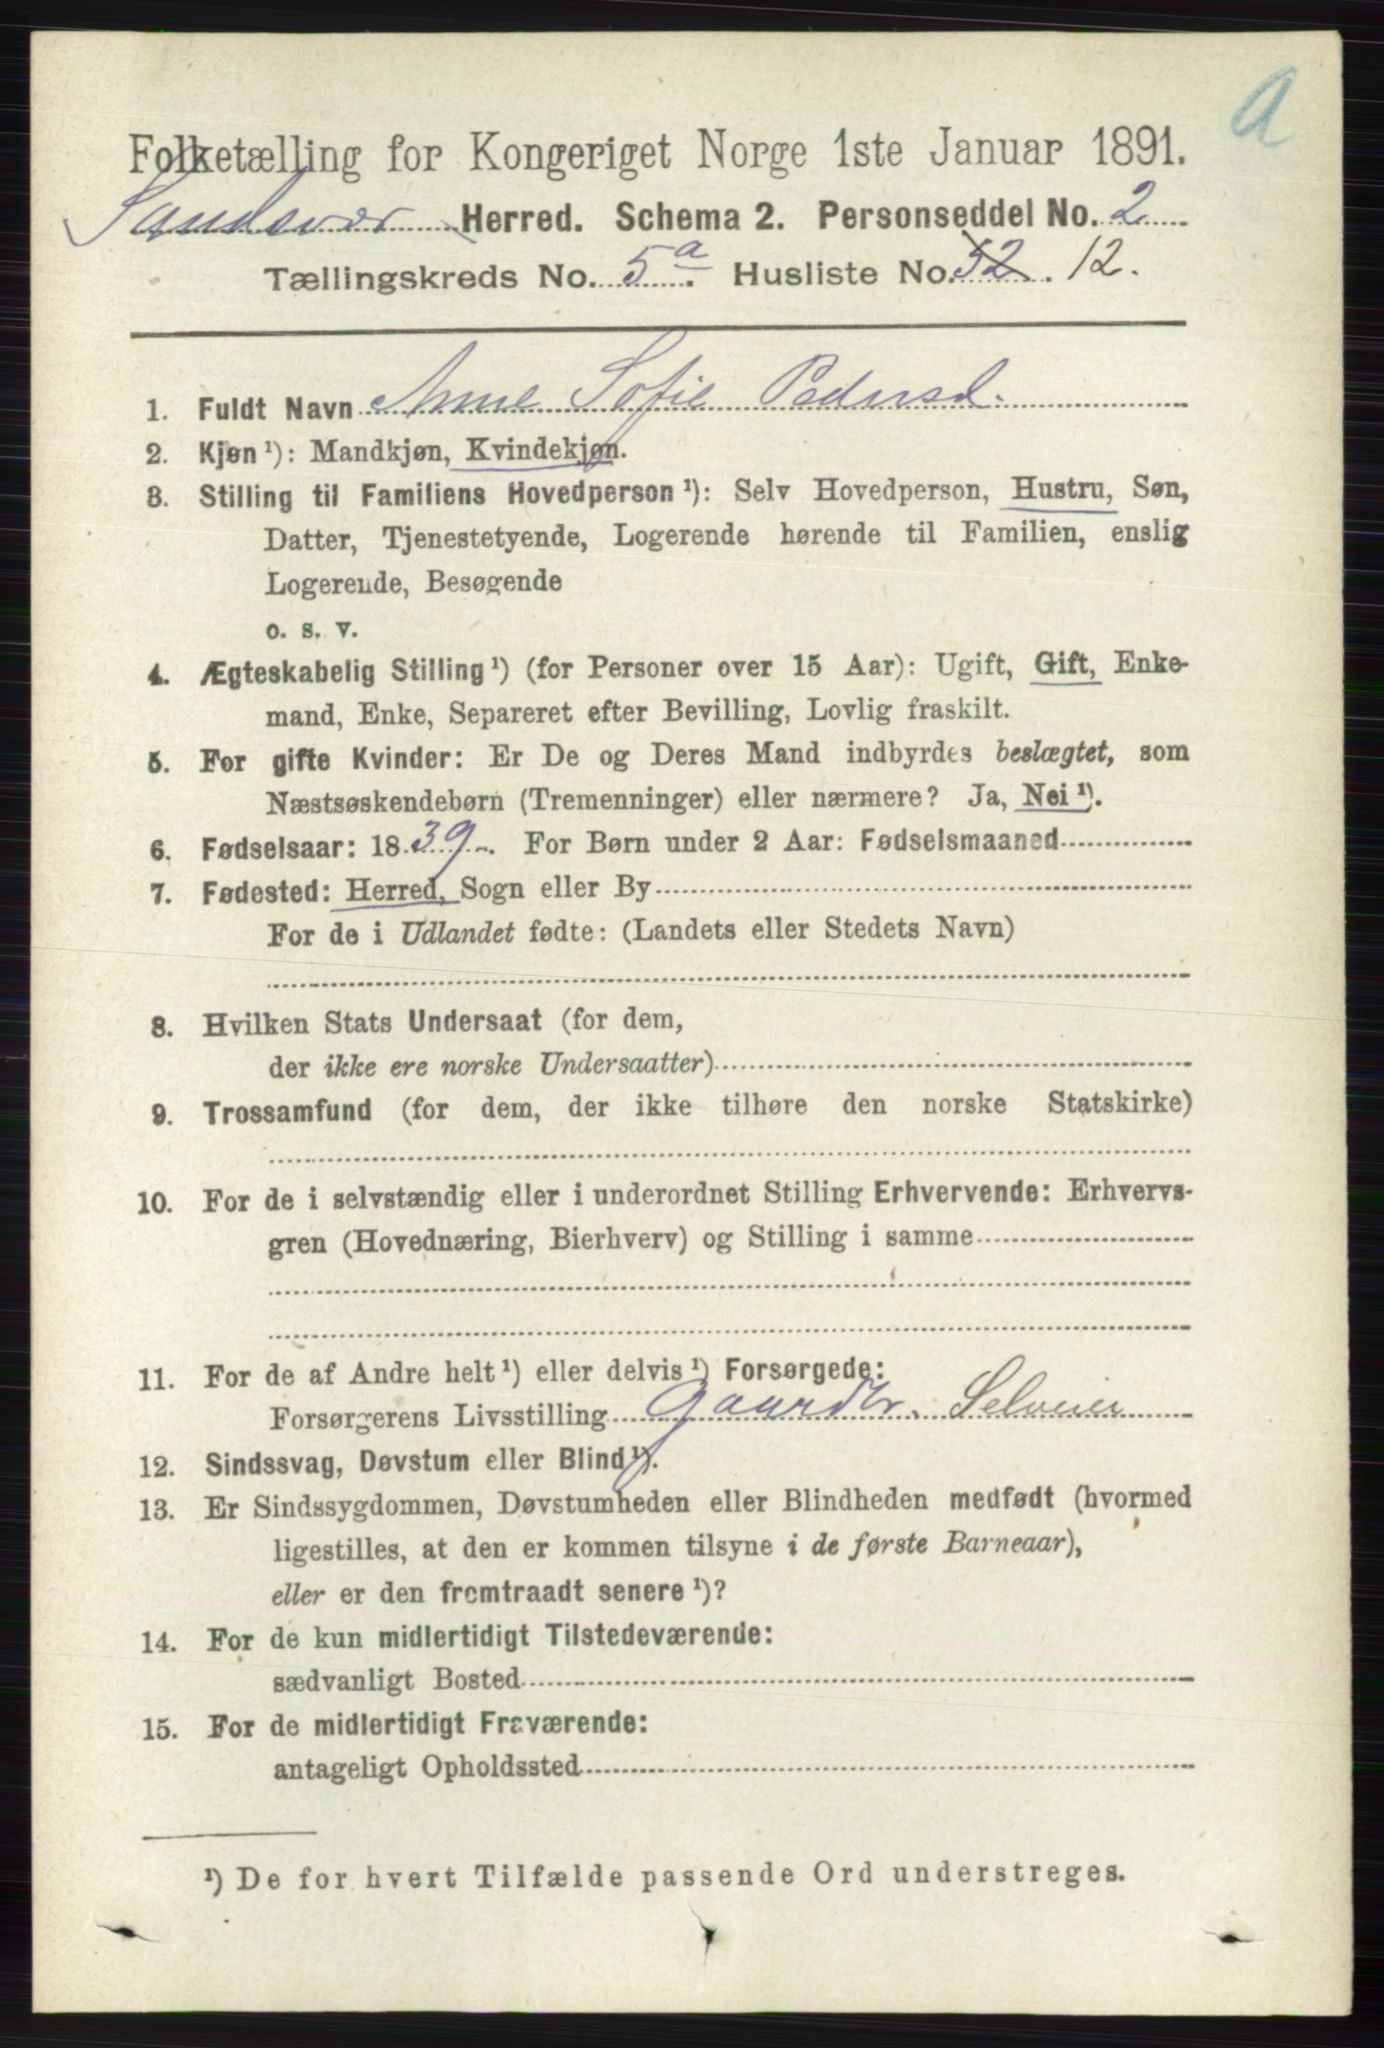 a
Folketælling for Kongeriget Norge 1ste Januar 1891.
Sandsvær Herred. Schema 2. Personseddel No. 2
Tællingskreds No. 5a. Husliste No. 32. 12.
1. Fuldt Navn Anne Sofie Pedersd.
2. Kjøn ¹): Mandkjøn, Kvindekjøn.
3. Stilling til Familiens Hovedperson ¹): Selv Hovedperson, Hustru, Søn,
Datter, Tjenestetyende, Logerende hørende til Familien, enslig
Logerende, Besøgende
o. s. v.
4. Ægteskabelig Stilling ¹) (for Personer over 15 Aar): Ugift, Gift, Enke-
mand, Enke, Separeret efter Bevilling, Lovlig fraskilt.
5. For gifte Kvinder: Er De og Deres Mand indbyrdes beslægtet, som
Næstsøskendebørn (Tremenninger) eller nærmere? Ja, Nei ¹).
6. Fødselsaar: 1839. For Børn under 2 Aar: Fødselsmaaned
7. Fødested: Herred, Sogn eller By
For de i Udlandet fødte: (Landets eller Stedets Navn)
8. Hvilken Stats Undersaat (for dem,
der ikke ere norske Undersaatter)
9. Trossamfund (for dem, der ikke tilhøre den norske Statskirke)
10. For de i selvstændig eller i underordnet Stilling Erhvervende: Erhvervs-
gren (Hovednæring, Bierhverv) og Stilling i samme
11. For de af Andre helt ¹) eller delvis ¹) Forsørgede:
Forsørgerens Livsstilling Gaardbr. Selveier
12. Sindssvag, Døvstum eller Blind ¹).
13. Er Sindssygdommen, Døvstumheden eller Blindheden medfødt (hvormed
ligestilles, at den er kommen tilsyne i de første Barneaar),
eller er den fremtraadt senere ¹)?
14. For de kun midlertidigt Tilstedeværende:
sædvanligt Bosted
15. For de midlertidigt Fraværende:
antageligt Opholdssted
¹) De for hvert Tilfælde passende Ord understreges.